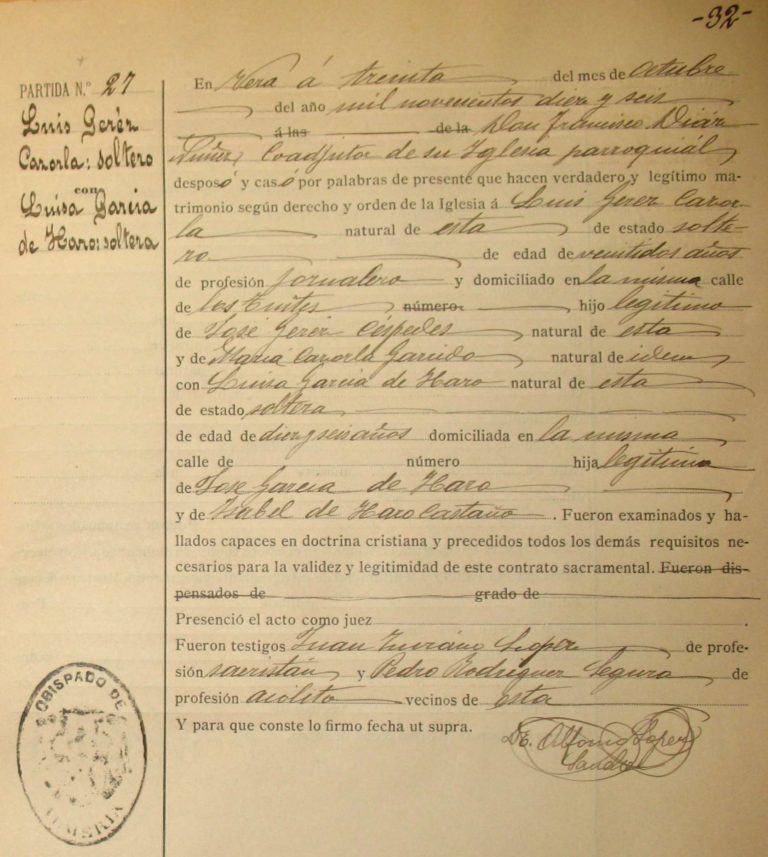 -32-
PARTIDA N.º 27
Luis Gerez
Cazorla: soltero
con
Luisa Garcia
de Haro: soltera
En Vera á treinta del mes de Octubre
del año mil novecientos diez y seis
á las de la Don Francisco Diaz
Nuñez, Coadjutor de su Iglesia parroquial,
desposó y casó por palabras de presente que hacen verdadero y legítimo ma-
trimonio según derecho y orden de la Iglesia á Luis Gerez Cazor-
la natural de esta de estado solte-
ro de edad de veintidos años
de profesión jornalero y domiciliado en la misma calle
de los número hijo legitimo
de José Gerez Céspedes natural de esta
y de Maria Cazorla Garrido natural de idem
con Luisa Garcia de Haro natural de esta
de estado soltera
de edad de diez y seis años domiciliada en la misma
calle de número hija legitima
de Jose Garcia de Haro
y de Isabel de Haro Castaño. Fueron examinados y ha-
llados capaces en doctrina cristiana y precedidos todos los demás requisitos ne-
cesarios para la validez y legitimidad de este contrato sacramental. Fueron dis-
pensados de grado de
Presenció el acto como juez
Fueron testigos Juan Lopez de profe-
sión sacristán y Pedro Rodriguez Segura de
profesión acólito vecinos de esta
Y para que conste lo firmo fecha ut supra.
Alfonso Lopez
OBISPADO DE
ALMERIA